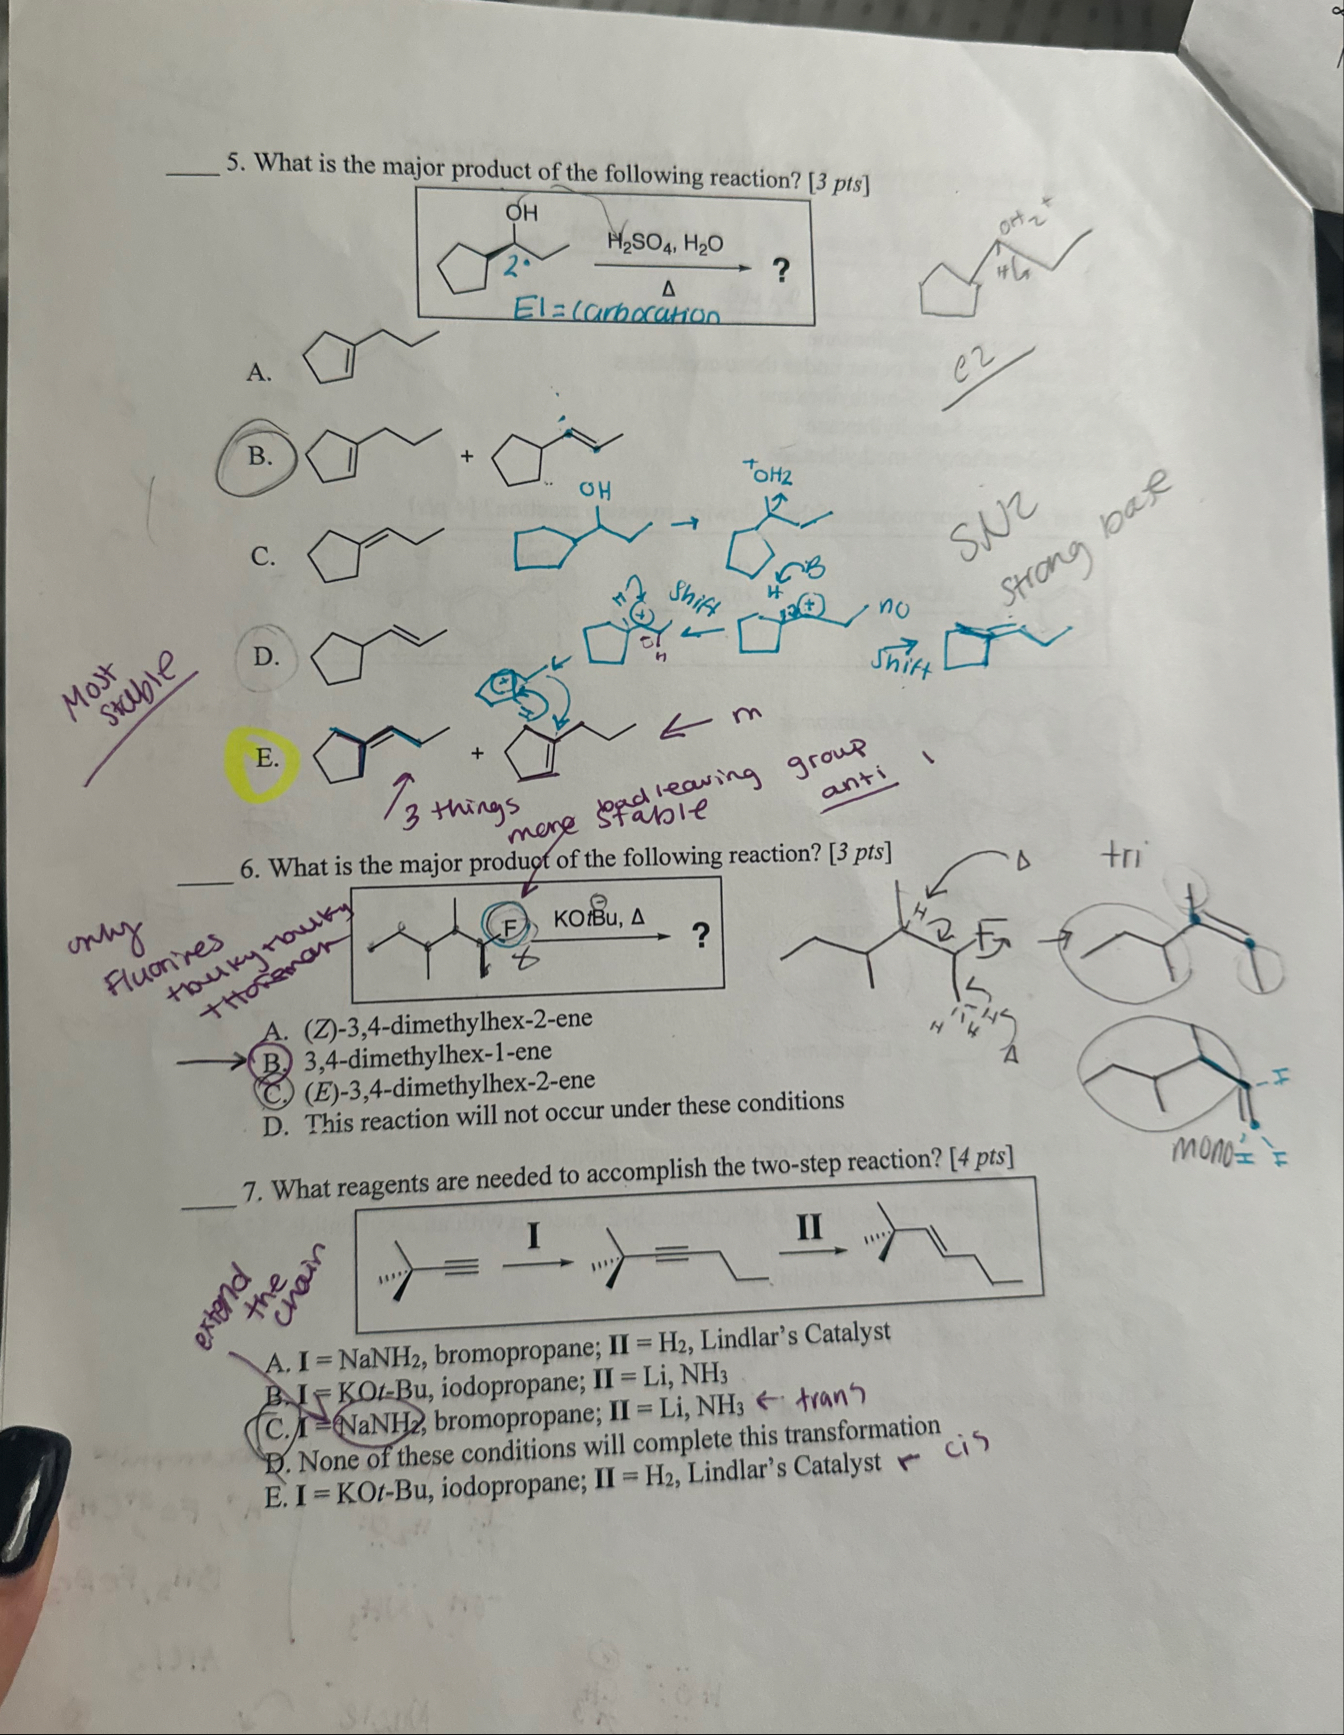 5. What is the major product of the following reaction? [3 pts]
OH
H₂SO₄, H₂O
Δ
?
2°
E1 = Carbocation
OH₂⁺
H
e2
A.
B.
+
OH
⁺OH2
SN2
strong base
C.
H
B
H
Shift
+
no
Shift
D.
H
Most
stable
E.
+
← m
3 things
more stable
bad leaving group
anti
6. What is the major product of the following reaction? [3 pts]
F
KOtBu, Δ
?
Δ
tri
H
F
H H H
Δ
only
Fluorines
A. (Z)-3,4-dimethylhex-2-ene
B. 3,4-dimethylhex-1-ene
C. (E)-3,4-dimethylhex-2-ene
D. This reaction will not occur under these conditions
H
mono
H H
7. What reagents are needed to accomplish the two-step reaction? [4 pts]
I
II
extend
the
chain
A. I = NaNH₂, bromopropane; II = H₂, Lindlar's Catalyst
B. I = KOt-Bu, iodopropane; II = Li, NH₃
C. I = NaNH₂, bromopropane; II = Li, NH₃ ← trans
D. None of these conditions will complete this transformation
E. I = KOt-Bu, iodopropane; II = H₂, Lindlar's Catalyst ← cis